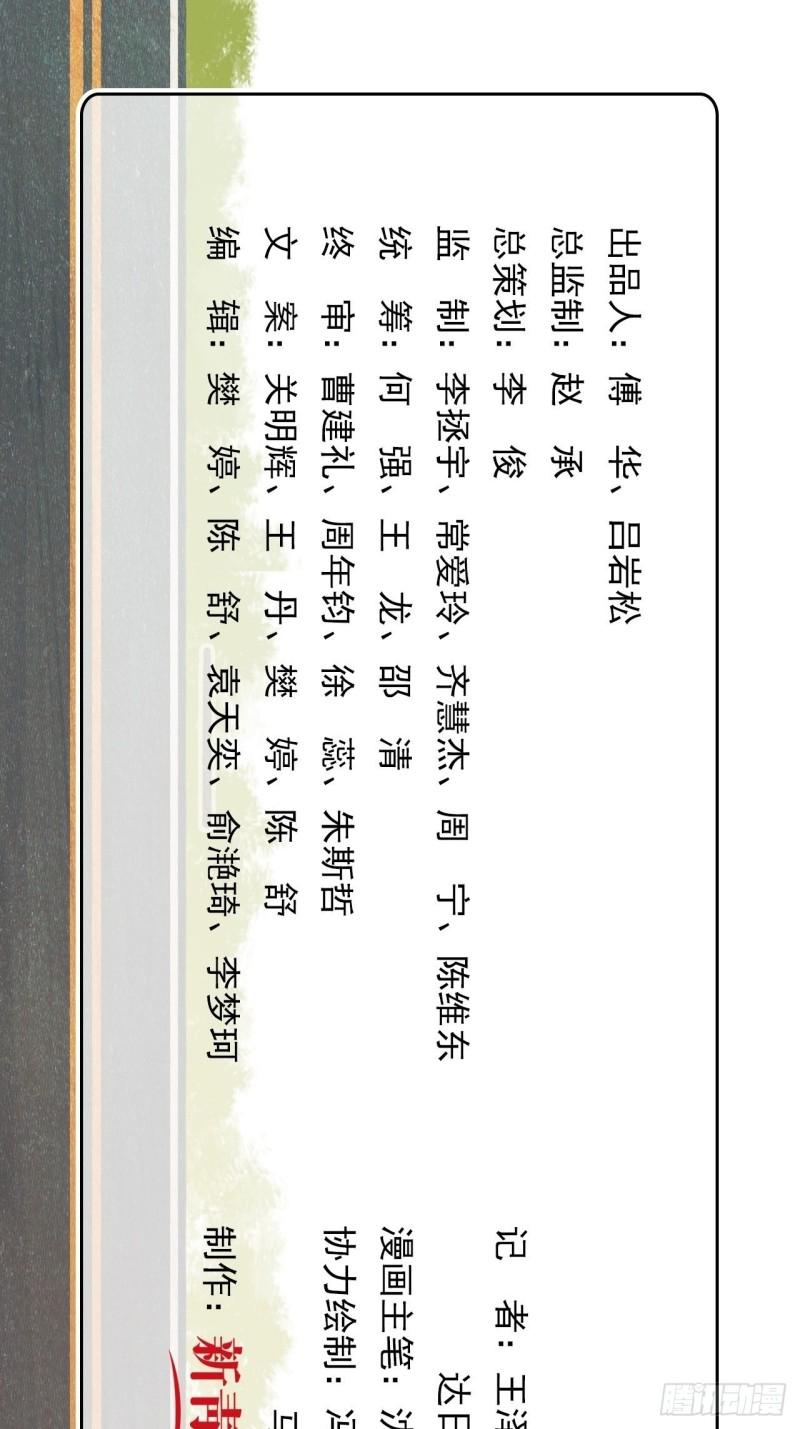 出品人：傅　华、吕岩松
总监制：赵　承
总策划：李　俊
监　制：李拯宇、常爱玲、齐慧杰、周　宁、陈维东
统　筹：何　强、王　龙、邵　清
终　审：曹建礼、周年钧、徐　蕊、朱斯哲
文　案：关明辉、王　丹、樊　婷、陈　舒
编　辑：樊　婷、陈　舒、袁天奕、俞滟琦、李梦珂
记　者：王泽
达日
漫画主笔：沈
协力绘制：冯
马
制作：新青
腾讯动漫